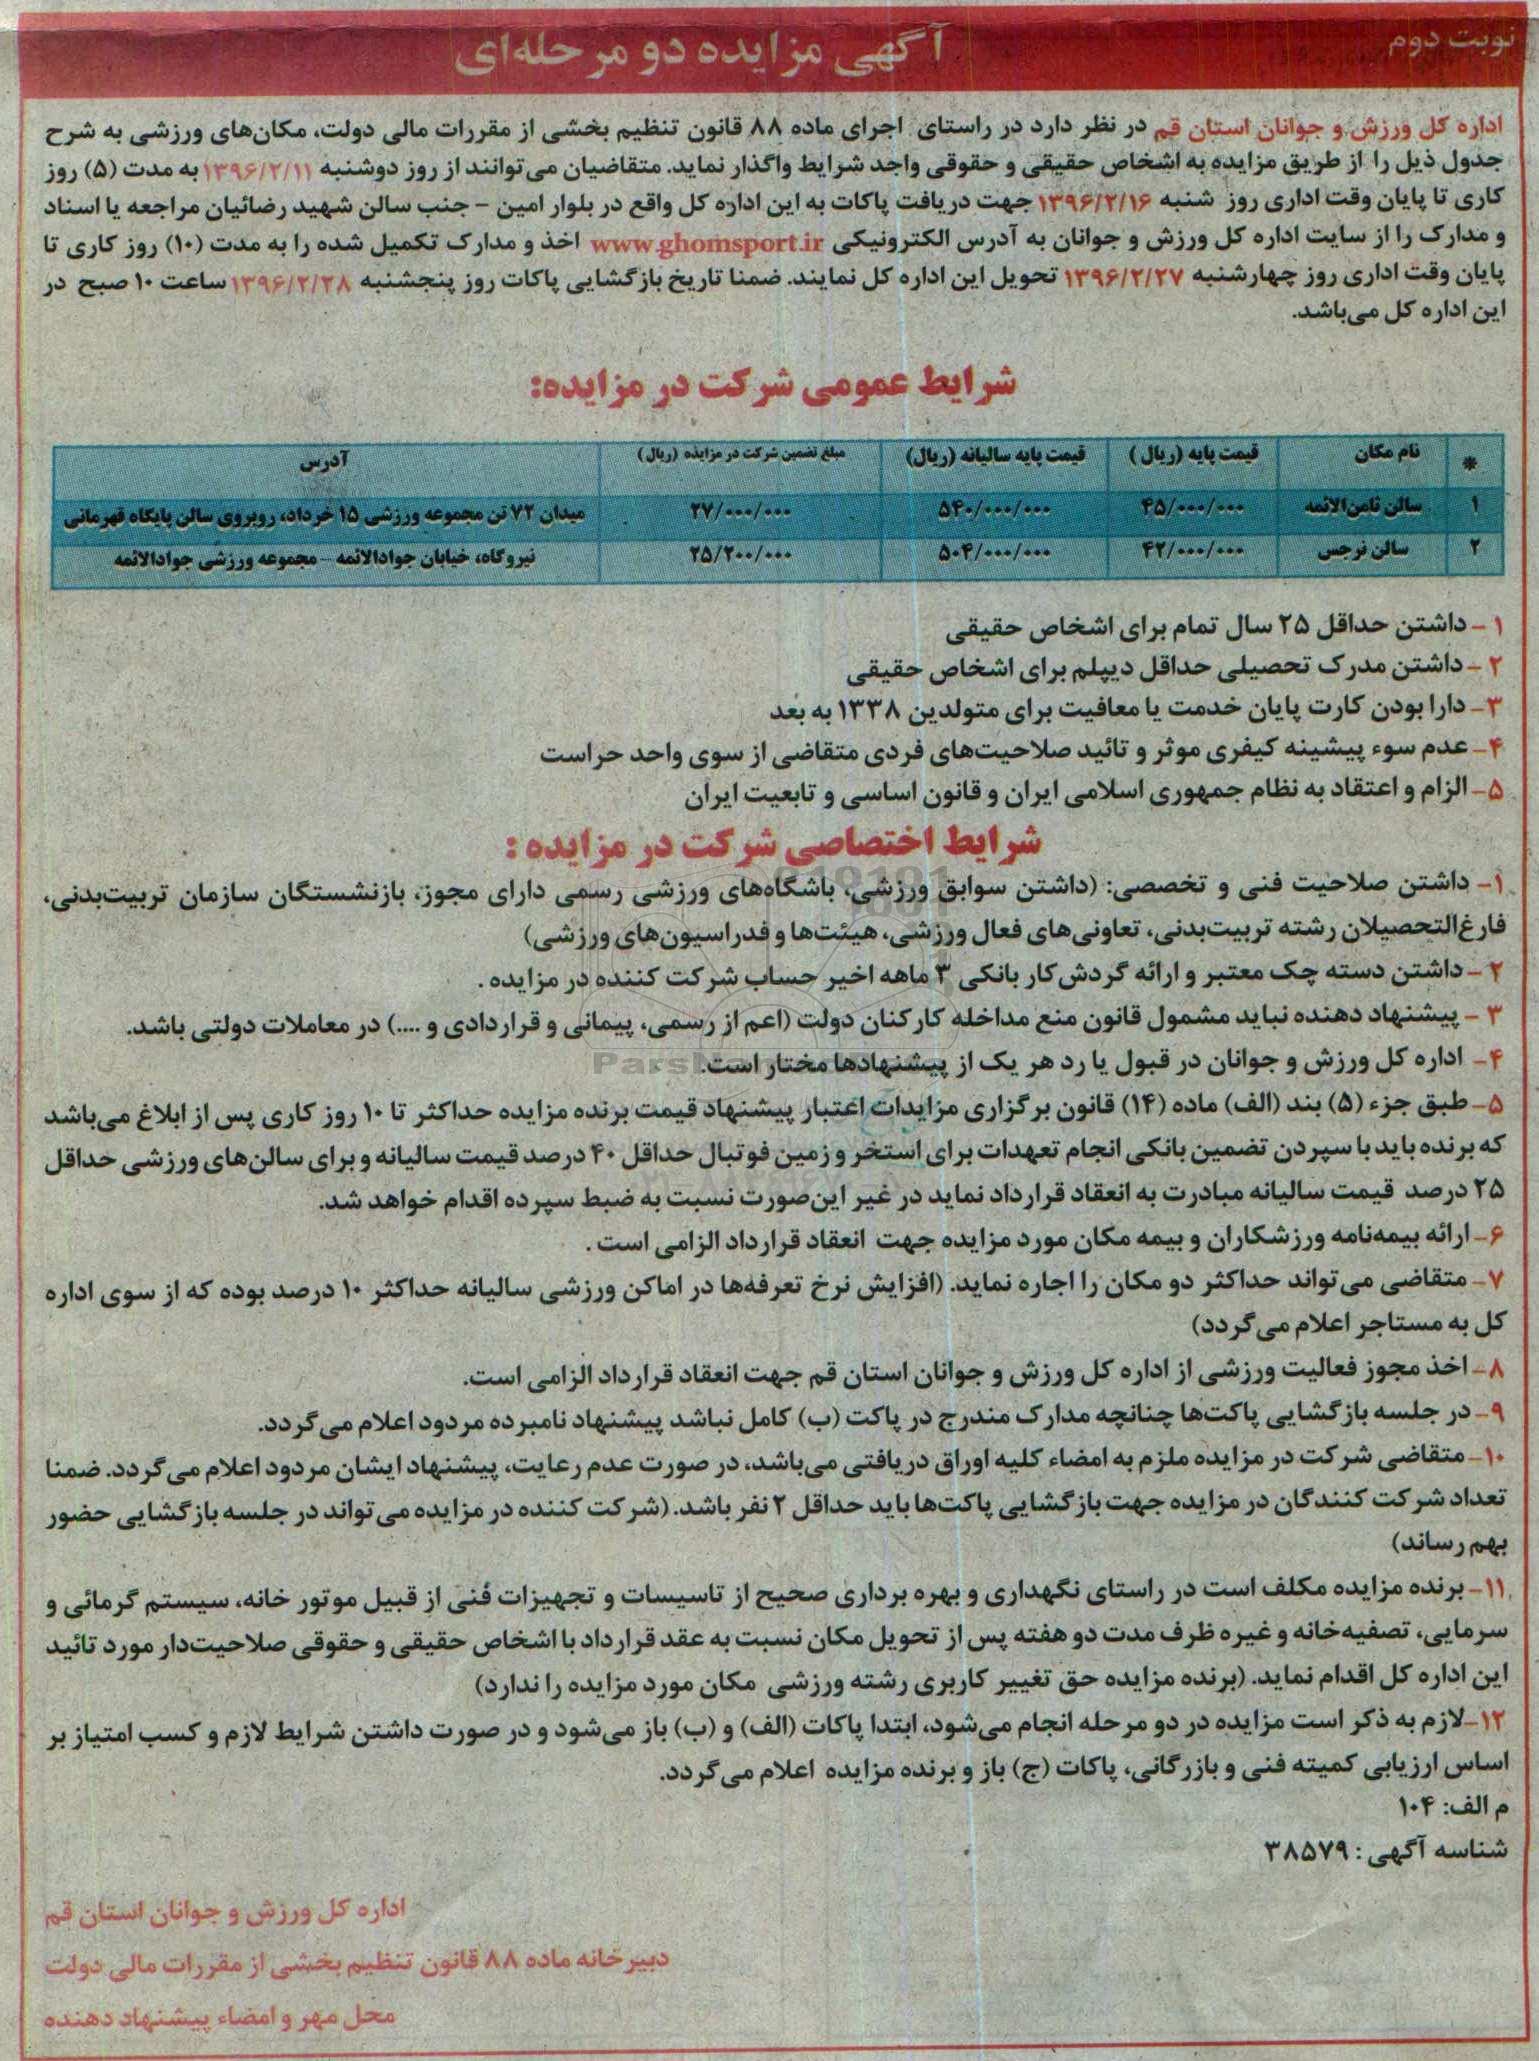 نوبت دوم
آگهی مزایده دو مرحله‌ای
اداره کل ورزش و جوانان استان قم در نظر دارد در راستای اجرای ماده ۸۸ قانون تنظیم بخشی از مقررات مالی دولت، مکان‌های ورزشی به شرح
جدول ذیل را از طریق مزایده به اشخاص حقیقی و حقوقی واجد شرایط واگذار نماید. متقاضیان می‌توانند از روز دوشنبه ۱۳۹۶/۲/۱۱ به مدت (۵) روز
کاری تا پایان وقت اداری روز شنبه ۱۳۹۶/۲/۱۶ جهت دریافت پاکات به این اداره کل واقع در بلوار امین - جنب سالن شهید رضائیان مراجعه یا اسناد
و مدارک را از سایت اداره کل ورزش و جوانان به آدرس الکترونیکی www.ghomsport.ir اخذ و مدارک تکمیل شده را به مدت (۱۰) روز کاری تا
پایان وقت اداری روز چهارشنبه ۱۳۹۶/۲/۲۷ تحویل این اداره کل نمایند. ضمنا تاریخ بازگشایی پاکات روز پنجشنبه ۱۳۹۶/۲/۲۸ ساعت ۱۰ صبح در
این اداره کل می‌باشد.
شرایط عمومی شرکت در مزایده:
* نام مکان قیمت پایه (ریال) قیمت پایه سالیانه (ریال) مبلغ تضمین شرکت در مزایده (ریال) آدرس
۱ سالن ثامن‌الائمه ۴۵/۰۰۰/۰۰۰ ۵۴۰/۰۰۰/۰۰۰ ۲۷/۰۰۰/۰۰۰ میدان ۷۲ تن مجموعه ورزشی ۱۵ خرداد، روبروی سالن پایگاه قهرمانی
۲ سالن نرجس ۴۲/۰۰۰/۰۰۰ ۵۰۴/۰۰۰/۰۰۰ ۲۵/۲۰۰/۰۰۰ نیروگاه، خیابان جوادالائمه - مجموعه ورزشی جوادالائمه
۱ - داشتن حداقل ۲۵ سال تمام برای اشخاص حقیقی
۲ - داشتن مدرک تحصیلی حداقل دیپلم برای اشخاص حقیقی
۳- دارا بودن کارت پایان خدمت یا معافیت برای متولدین ۱۳۳۸ به بعد
۴- عدم سوء پیشینه کیفری موثر و تائید صلاحیت‌های فردی متقاضی از سوی واحد حراست
۵- الزام و اعتقاد به نظام جمهوری اسلامی ایران و قانون اساسی و تابعیت ایران
شرایط اختصاصی شرکت در مزایده :
۱- داشتن صلاحیت فنی و تخصصی: (داشتن سوابق ورزشی، باشگاه‌های ورزشی رسمی دارای مجوز، بازنشستگان سازمان تربیت‌بدنی،
فارغ‌التحصیلان رشته تربیت‌بدنی، تعاونی‌های فعال ورزشی، هیئت‌ها و فدراسیون‌های ورزشی)
۲ - داشتن دسته چک معتبر و ارائه گردش‌کار بانکی ۳ ماهه اخیر حساب شرکت کننده در مزایده .
۳ - پیشنهاد دهنده نباید مشمول قانون منع مداخله کارکنان دولت (اعم از رسمی، پیمانی و قراردادی و ....) در معاملات دولتی باشد.
۴- اداره کل ورزش و جوانان در قبول یا رد هر یک از پیشنهادها مختار است.
۵- طبق جزء (۵) بند (الف) ماده (۱۴) قانون برگزاری مزایدات اعتبار پیشنهاد قیمت برنده مزایده حداکثر تا ۱۰ روز کاری پس از ابلاغ می‌باشد
که برنده باید با سپردن تضمین بانکی انجام تعهدات برای استخر و زمین فوتبال حداقل ۴۰ درصد قیمت سالیانه و برای سالن‌های ورزشی حداقل
۲۵ درصد قیمت سالیانه مبادرت به انعقاد قرارداد نماید در غیر این‌صورت نسبت به ضبط سپرده اقدام خواهد شد.
۶- ارائه بیمه‌نامه ورزشکاران و بیمه مکان مورد مزایده جهت انعقاد قرارداد الزامی است .
۷- متقاضی می‌تواند حداکثر دو مکان را اجاره نماید. (افزایش نرخ تعرفه‌ها در اماکن ورزشی سالیانه حداکثر ۱۰ درصد بوده که از سوی اداره
کل به مستاجر اعلام می‌گردد)
۸- اخذ مجوز فعالیت ورزشی از اداره کل ورزش و جوانان استان قم جهت انعقاد قرارداد الزامی است.
۹- در جلسه بازگشایی پاکت‌ها چنانچه مدارک مندرج در پاکت (ب) کامل نباشد پیشنهاد نامبرده مردود اعلام می‌گردد.
۱۰- متقاضی شرکت در مزایده ملزم به امضاء کلیه اوراق دریافتی می‌باشد، در صورت عدم رعایت، پیشنهاد ایشان مردود اعلام می‌گردد. ضمنا
تعداد شرکت کنندگان در مزایده جهت بازگشایی پاکت‌ها باید حداقل ۲ نفر باشد. (شرکت کننده در مزایده می‌تواند در جلسه بازگشایی حضور
بهم رساند)
۱۱- برنده مزایده مکلف است در راستای نگهداری و بهره برداری صحیح از تاسیسات و تجهیزات فنی از قبیل موتور خانه، سیستم گرمائی و
سرمایی، تصفیه‌خانه و غیره ظرف مدت دو هفته پس از تحویل مکان نسبت به عقد قرارداد با اشخاص حقیقی و حقوقی صلاحیت‌دار مورد تائید
این اداره کل اقدام نماید. (برنده مزایده حق تغییر کاربری رشته ورزشی مکان مورد مزایده را ندارد)
۱۲-لازم به ذکر است مزایده در دو مرحله انجام می‌شود، ابتدا پاکات (الف) و (ب) باز می‌شود و در صورت داشتن شرایط لازم و کسب امتیاز بر
اساس ارزیابی کمیته فنی و بازرگانی، پاکات (ج) باز و برنده مزایده اعلام می‌گردد.
م الف: ۱۰۴
شناسه آگهی : ۳۸۵۷۹
اداره کل ورزش و جوانان استان قم
دبیرخانه ماده ۸۸ قانون تنظیم بخشی از مقررات مالی دولت
محل مهر و امضاء پیشنهاد دهنده